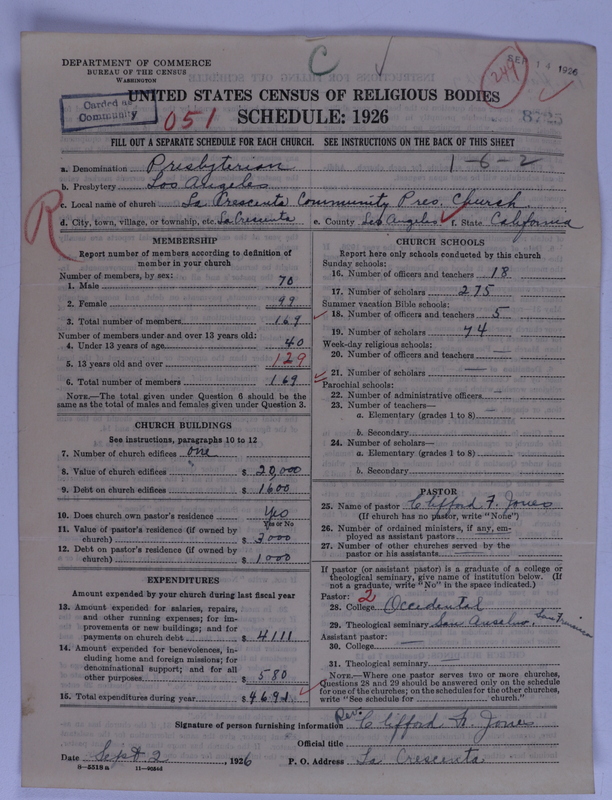 DEPARTMENT OF COMMERCE
BUREAU OF THE CENSUS
WASHINGTON
C
249
SEP 14 1926
UNITED STATES CENSUS OF RELIGIOUS BODIES
Carded as Community
051
SCHEDULE: 1926
8725
FILL OUT A SEPARATE SCHEDULE FOR EACH CHURCH. SEE INSTRUCTIONS ON THE BACK OF THIS SHEET
a. Denomination Presbyterian 1-6-2
b. Presbytery Los Angeles
c. Local name of church La Crescenta Community Pres. Church
R
d. City, town, village, or township, etc. La Crescenta e. County Los Angeles f. State California
MEMBERSHIP
Report number of members according to definition of member in your church
Number of members, by sex:
1. Male 70
2. Female 99
3. Total number of members 169
Number of members under and over 13 years old:
4. Under 13 years of age 40
5. 13 years old and over 129
6. Total number of members 169
NOTE.—The total given under Question 6 should be
same as the total of males and females given under Question 3.
CHURCH BUILDINGS
See instructions, paragraphs 10 to 12
7. Number of church edifices one
8. Value of church edifices $ 20,000
9. Debt on church edifices $ 1600
10. Does church own pastor's residence Yes
Yes or No
11. Value of pastor's residence (if owned by
church) $ 3000
12. Debt on pastor's residence (if owned by
church) $ 1000
EXPENDITURES
Amount expended by your church during last fiscal year
13. Amount expended for salaries, repairs,
and other running expenses; for im-
provements or new buildings; and for
payments on church debt $ 4111
14. Amount expended for benevolences, in-
cluding home and foreign missions; for
denominational support; and for all
other purposes $ 580
15. Total expenditures during year $ 4691
CHURCH SCHOOLS
Report here only schools conducted by this church
Sunday schools:
16. Number of officers and teachers 18
17. Number of scholars 275
Summer vacation Bible schools:
18. Number of officers and teachers 5
19. Number of scholars 74
Week-day religious schools:
20. Number of officers and teachers —
21. Number of scholars —
Parochial schools:
22. Number of administrative officers —
23. Number of teachers—
a. Elementary (grades 1 to 8)
b. Secondary
24. Number of scholars—
a. Elementary (grades 1 to 8) —
b. Secondary
PASTOR
25. Name of pastor Clifford F. Jones
(If church has no pastor, write "None")
26. Number of ordained ministers, if any, em-
ployed as assistant pastors
27. Number of other churches served by the
pastor or his assistants
If pastor (or assistant pastor) is a graduate of a college or
theological seminary, give name of institution below. (If
not a graduate, write "No" in the space indicated.)
Pastor: 2
28. College Occidental
29. Theological seminary San Anselmo, San Francisco
Assistant pastor:
30. College —
31. Theological seminary —
NOTE.—Where one pastor serves two or more churches,
Questions 28 and 29 should be answered only on the schedule
for one of the churches; on the schedules for the other churches,
write "See schedule for church."
Signature of person furnishing information Rev. Clifford F. Jones
Official title
Date Sept 2, 1926 P. O. Address La Crescenta
8—5518a